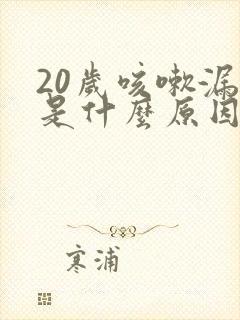 20歲咳嗽漏
是什麼原因
寒浦